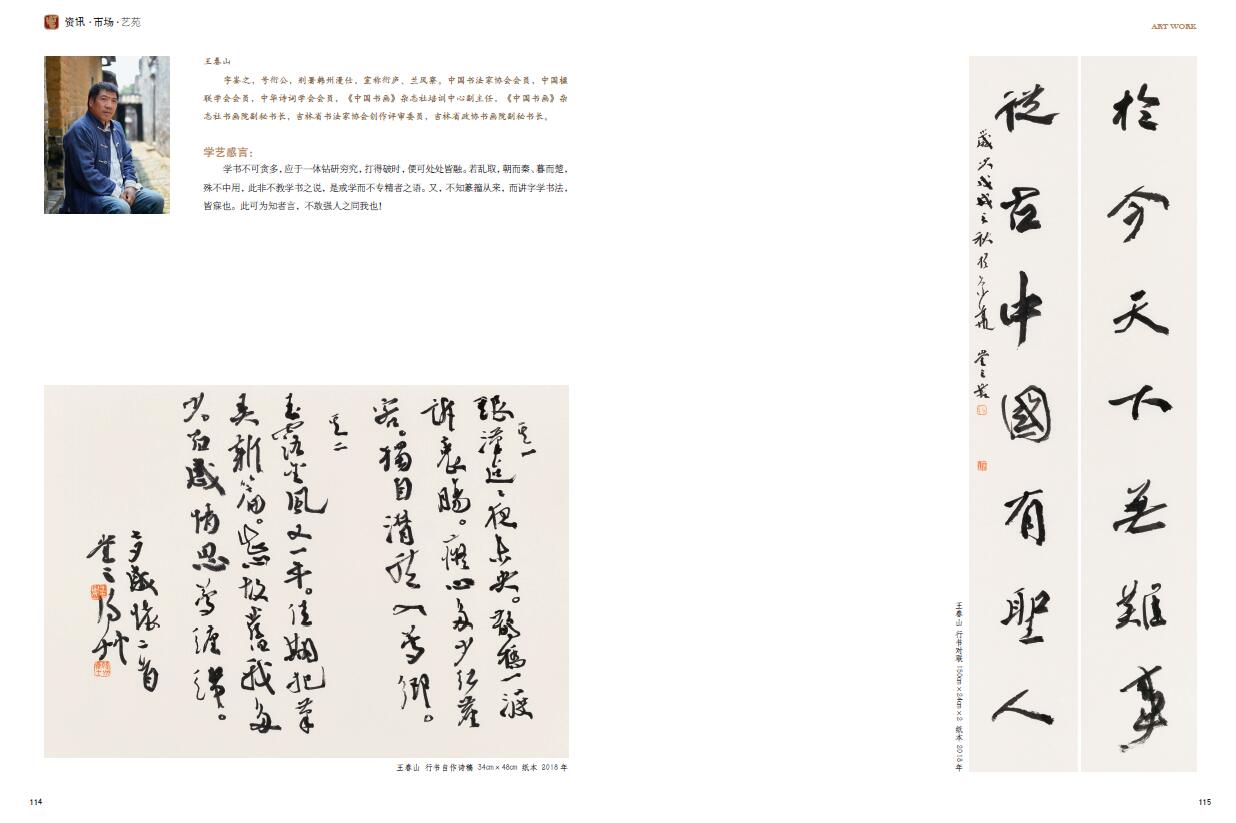 资讯·市场·艺苑
ART WORK
王春山
字崟之，号衍公，别署韩州漫仕，室称衍庐、兰凤寨。中国书法家协会会员，中国楹
联学会会员，中华诗词学会会员，《中国书画》杂志社培训中心副主任，《中国书画》杂
志社书画院副秘书长，吉林省书法家协会创作评审委员，吉林省政协书画院副秘书长。
学艺感言：
学书不可贪多，应于一体钻研穷究，打得破时，便可处处皆融。若乱取，朝而秦、暮而楚，
殊不中用，此非不教学书之说，是戒学而不专精者之语。又，不知篆籀从来，而讲字学书法，
皆寐也。此可为知者言，不敢强人之同我也！
其一
银汉迢迢夜未央。鹊桥一渡
谁衷肠。痴心多少红尘
客。独自潜然入梦乡。
其二
玉露金风又一年。佳期把笔
弄新篇。悲故旧我多
少。初感情思梦缠绵。
七夕感怀二首
王春山 行书自作诗稿 34cm×48cm 纸本 2018年
於今天下无難事
從古中國有聖人
歲次戊戌之秋於
王春山 行书对联 150cm×24cm×2 纸本 2018年
114
115